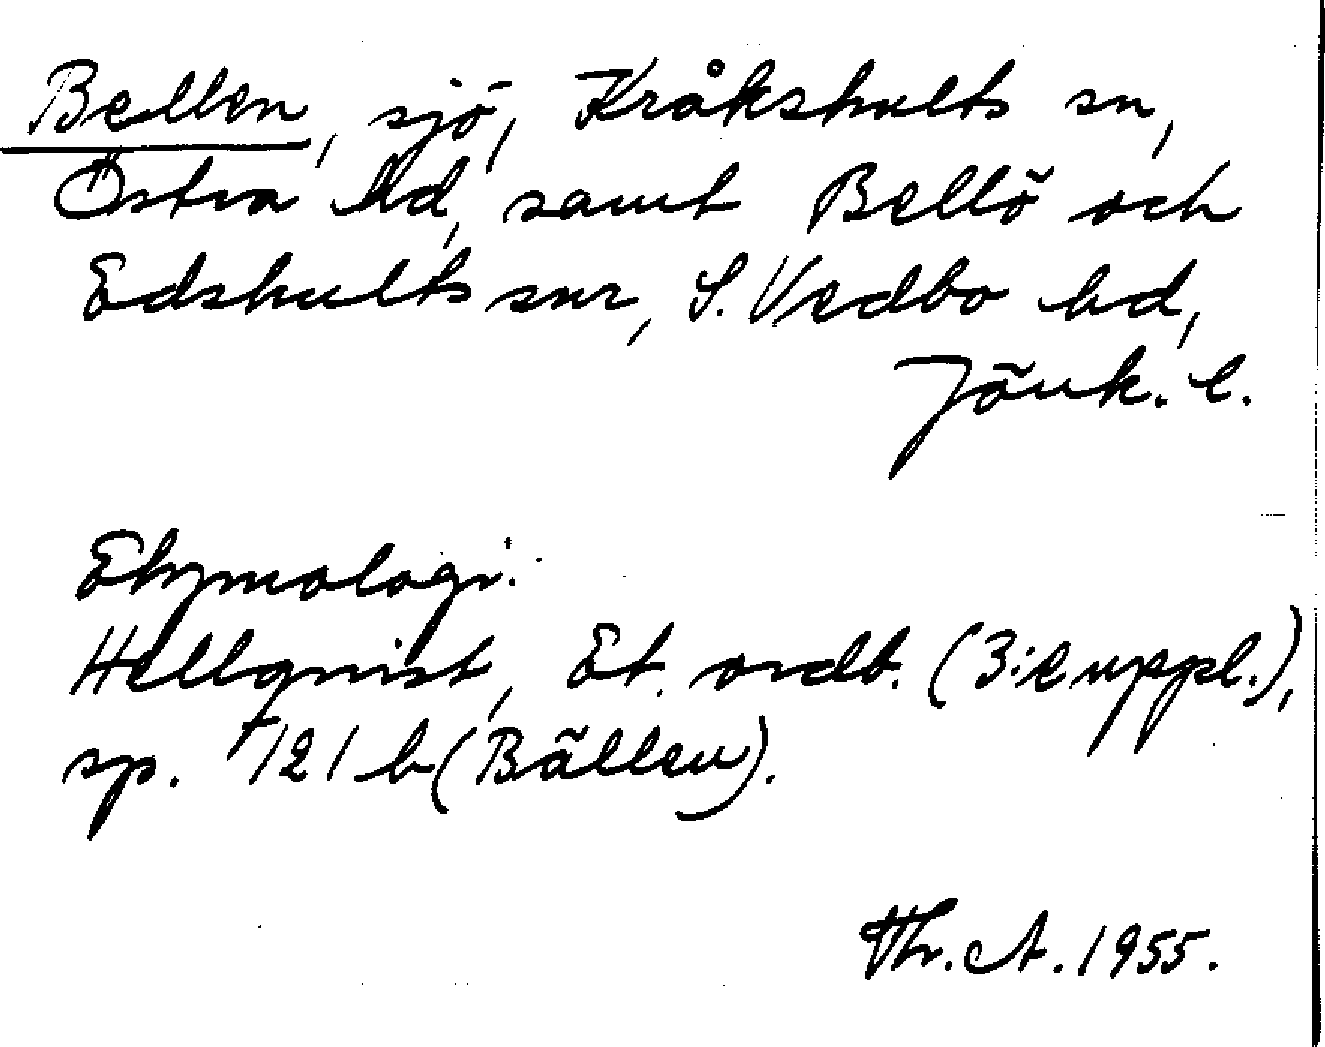 Bellen, sjö, Kråkshults sn,
Östra hd, samt Bellö och
Edshults snr, S. Vedbo hd,
Jönk. l.
Etymologi:
Hellquist, Et. ordb. (3:e uppl.),
sp. 121 b (Bällen).
Th. A. 1955.